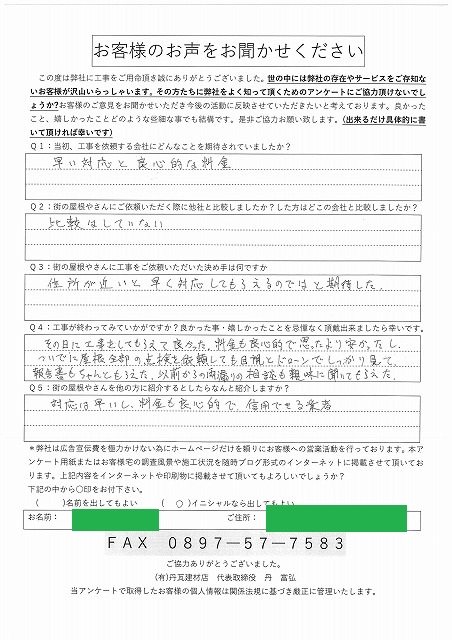 お客様のお声をお聞かせください
この度は弊社に工事をご用命頂き誠にありがとうございました。世の中には弊社の存在やサービスをご存知ない
お客様が沢山いらっしゃいます。その方たちに弊社をよく知って頂くためのアンケートにご協力頂けないでし
ょうか?お客様のご意見をお聞かせいただき今後の活動に反映させていただきたいと考えております。良かった
こと、嬉しかったことどのような些細な事でも結構です。是非ご協力お願い致します。(出来るだけ具体的に書
いて頂ければ幸いです)
Q1:当初、工事を依頼する会社にどんなことを期待されていましたか?
早い対応と良心的な料金
Q2:街の屋根やさんにご依頼いただく際に他社と比較しましたか?した方はどこの会社と比較しましたか?
比較はしていない
Q3:街の屋根やさんに工事をご依頼いただいた決め手は何ですか
住所が近いと早く対応してもらえるのではと期待した。
Q4:工事が終わってみていかがですか?良かった事・嬉しかったことを忌憚なく頂戴出来ましたら幸いです。
その日に工事をしてもらえて良かった。料金も良心的で思ったより安かったし、
ついでに屋根全部の点検を依頼しても目視とドローンでしっかり見て、
報告書もちゃんともらえた。以前からの雨漏りの相談も親味に聞いてもらえた。
Q5:街の屋根やさんを他の方に紹介するとしたらなんと紹介しますか?
対応は早いし、料金も良心的で、信用できる業者
*弊社は広告宣伝費を極力かけない為にホームページだけを頼りにお客様への営業活動を行っております。本ア
ンケート用紙またはお客様宅の調査風景や施工状況を随時ブログ形式のインターネットに掲載させて頂いてお
ります。上記内容をインターネットや印刷物に掲載させて頂いてもよろしいでしょうか?
下記の中から〇印をお付下さい。
( )名前を出してもよい ( ○ )イニシャルなら出してもよい
お名前: ご住所:
FAX 0897-57-7583
ご協力ありがとうございました。
(有)丹瓦建材店 代表取締役 丹 富弘
当アンケートで取得したお客様の個人情報は関係法規に基づき厳正に管理いたします。